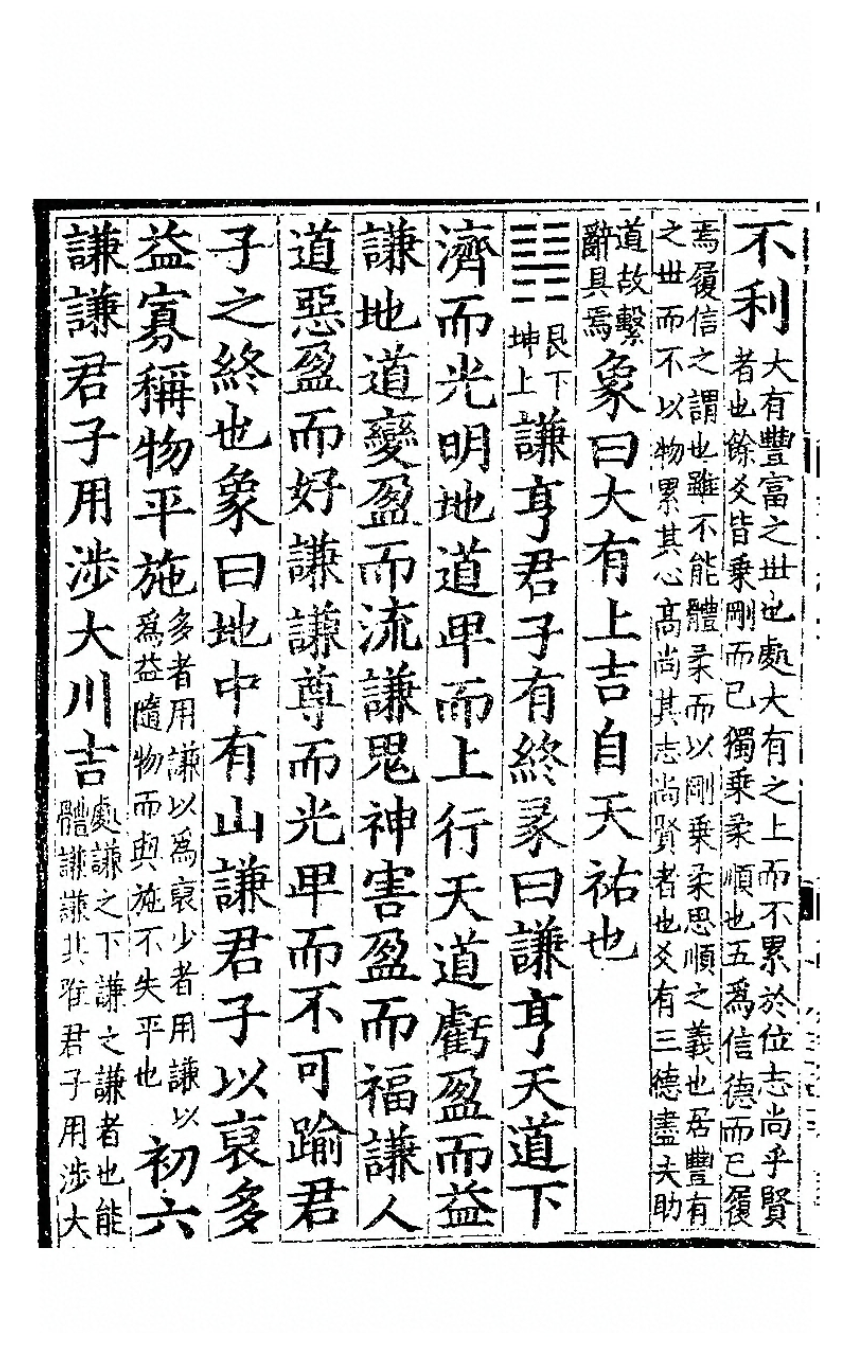 不利大有豐富之世也處大有之上而不累於位志尚乎賢
者也餘爻皆乗剛而已獨乗柔順也五爲信德而已履
焉履信之謂也雖不能體柔而以剛乗柔思順之義也居豐有
之世而不以物累其心高尚其志尚賢者也爻有三德盡夫助
道故繫
辭具焉
象曰大有上吉自天祐也
䷎艮下
坤上
謙亨君子有終彖曰謙亨天道下
濟而光明地道卑而上行天道虧盈而益
謙地道變盈而流謙鬼神害盈而福謙人
道惡盈而好謙謙尊而光卑而不可踰君
子之終也象曰地中有山謙君子以裒多
益寡稱物平施多者用謙以爲裒少者用謙以
爲益隨物而與施不失平也
初六
謙謙君子用涉大川吉處謙之下謙之謙者也能
體謙謙其唯君子用涉大